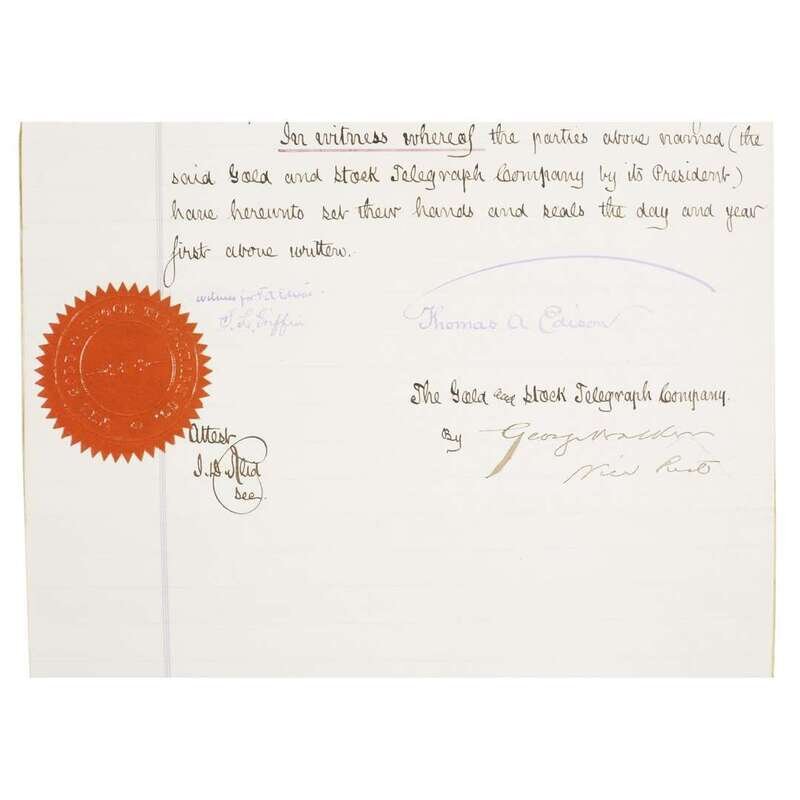 In witness whereof the parties above named (the
said Gold and Stock Telegraph Company by its President)
have hereunto set their hands and seals the day and year
first above written.
witness for T A Edison
S. L. Griffin
Thomas A Edison
The Gold and Stock Telegraph Company.
By George Walker
Vice Prest
Attest
J. D. Reid
Sec.